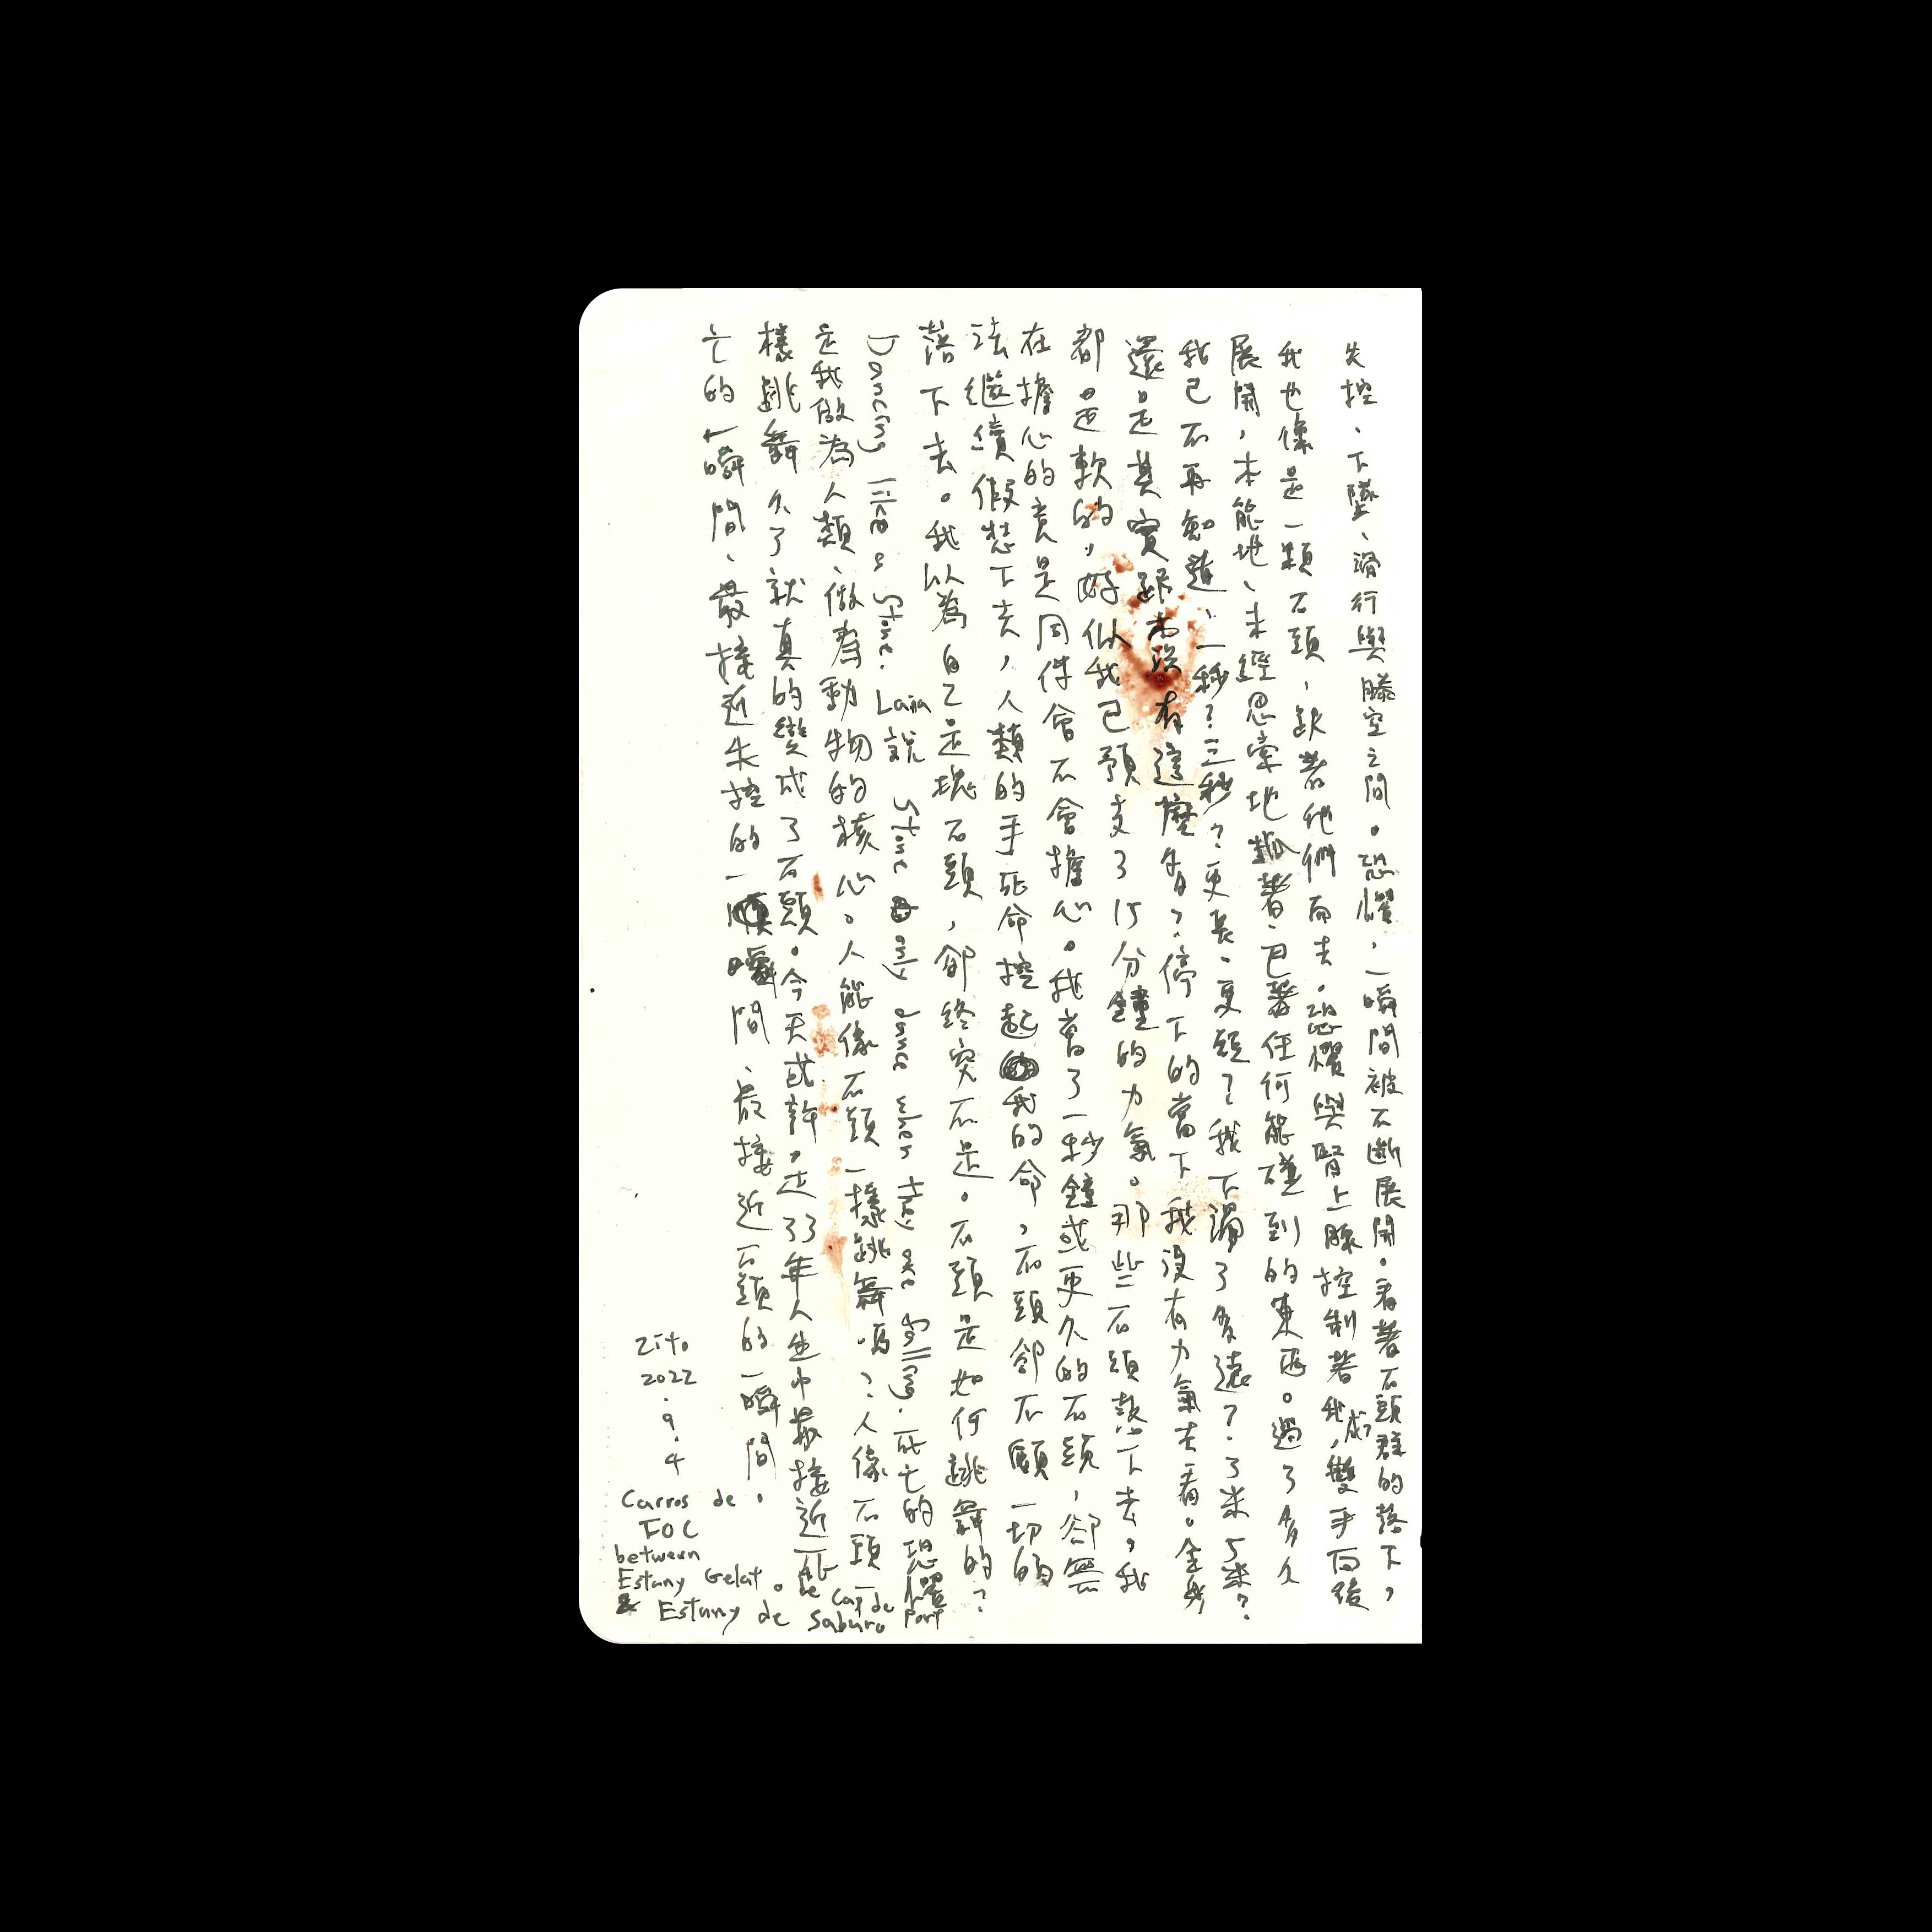 失控、下墜、滑行與騰空之間。恐懼,一瞬間被不斷展開。看著石頭群的落下,
我也像是一顆石頭,跟著他們而去。恐懼與腎上腺控制著我,雙手向後
展開,本能地、未經思索地抓著、巴著任何能碰到的東西。過了多久
我已不再知道,一秒?三秒?更長。更短?我下滑了多遠?3米5米?
還是其實跟本沒有這麼多?停下的當下我沒有力氣去看。全身
都是軟的,好似我已預支了15分鐘的力氣。那些石頭落下去,我
在擔心的竟是同伴會不會擔心。我當了一秒鐘或更久的石頭,卻無
法繼續假裝下去,人類的手死命控起我的命,石頭卻不顧一切的
落下去。我以為自己是塊石頭,卻終究不是。石頭是如何跳舞的?
Dancing like a stone. Laia說 Stone only dance when they are falling. 死亡的恐懼
是我做為人類、做為動物的核心。人能像石頭一樣跳舞嗎?人像石頭一
樣跳舞久了就真的變成了石頭。今天或許是33年人生中最接近死
亡的一瞬間、最接近失控的一瞬間、最接近石頭的一瞬間。
Zito
2022
.9.4
Carros de
FOC
between
Estany Gelat
& Estany de Saburo
de Cap de Port